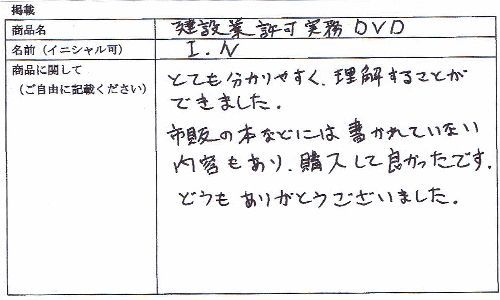 掲載
商品名 建設業許可実務DVD
名前（イニシャル可） I.N
商品に関して
（ご自由に記載ください）
とても分かりやすく、理解することが
できました。
市販の本などには書かれていない
内容もあり、購入して良かったです。
どうもありがとうございました。